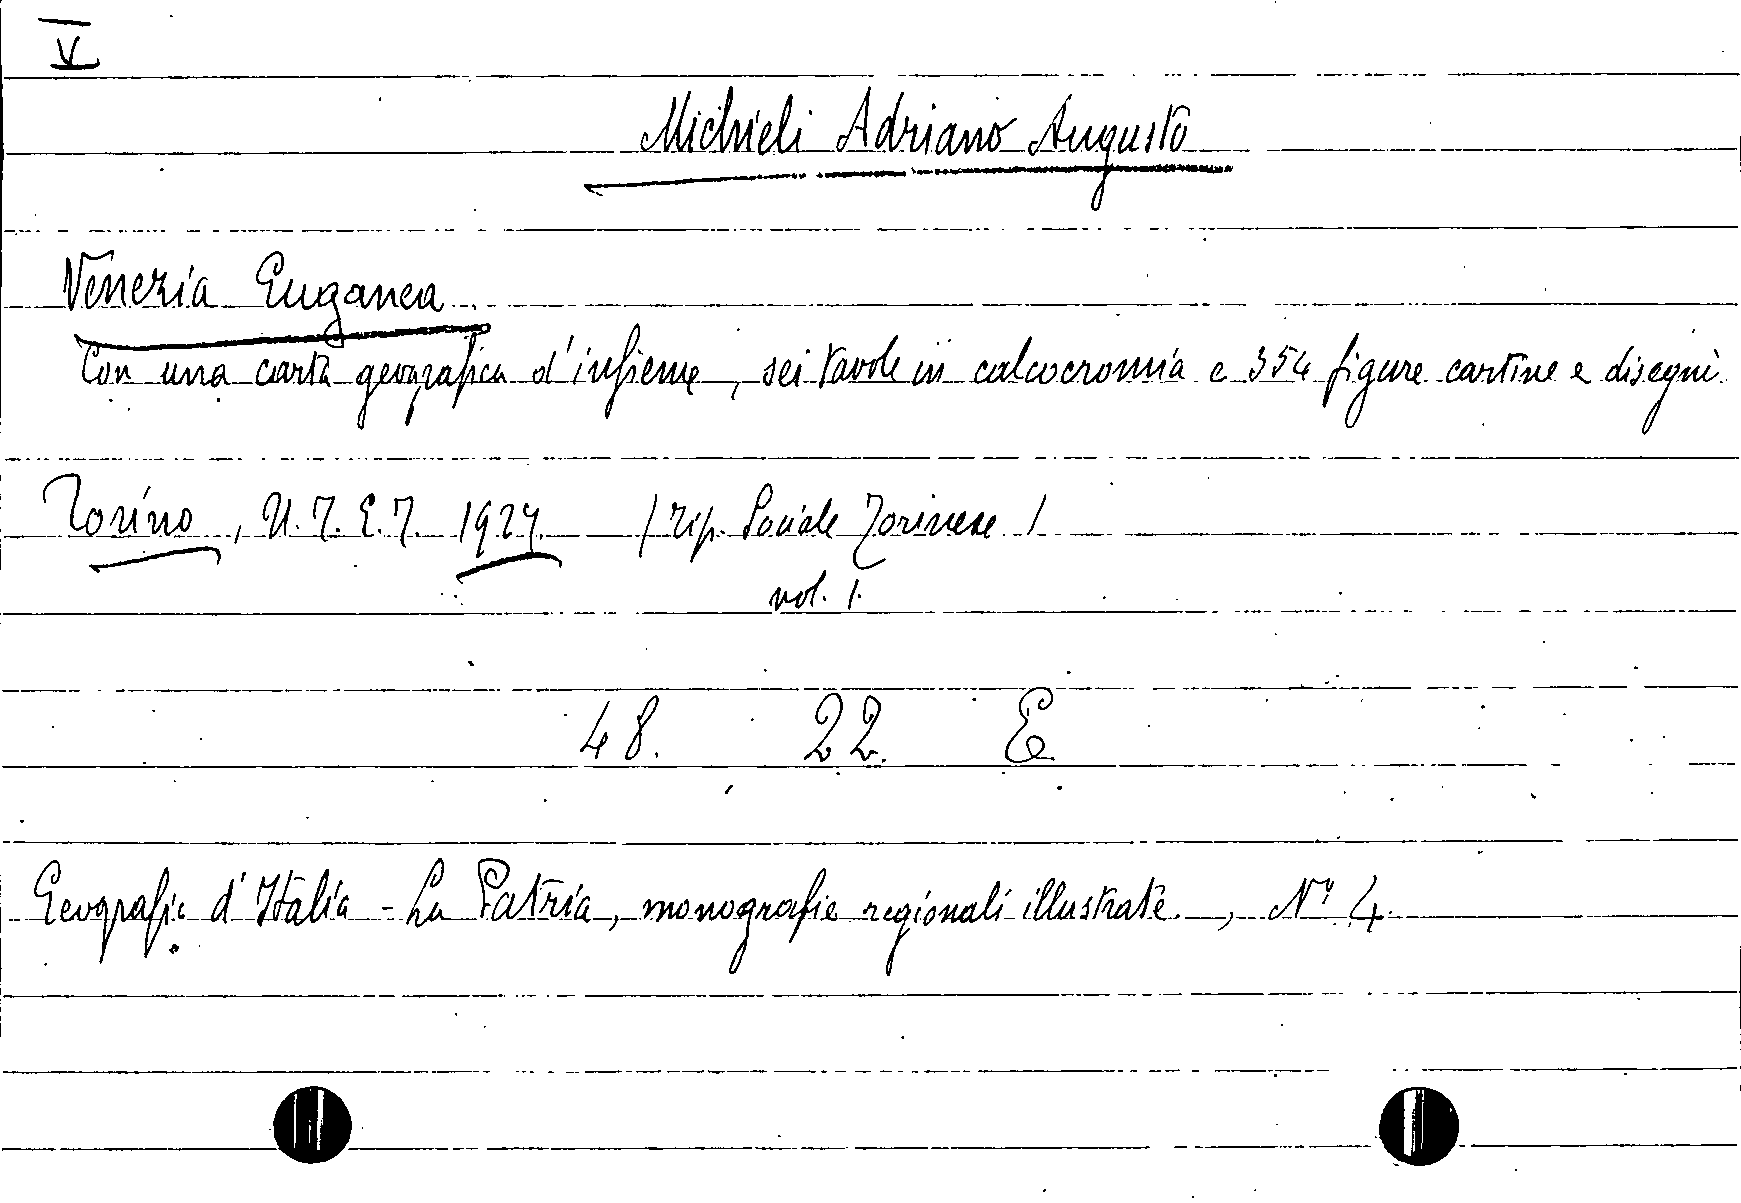 V
Michieli Adriano Augusto
Venezia Euganea
Con una carta geografica d'insieme, sei tavole in calcocromia e 354 figure cartine e disegni
Torino, U.T.E.T. 1927. / Tip. Sociale Torinese /
vol. 1.
48. 22. E.
Geografia d'Italia - La Patria, monografie regionali illustrate, Nr 4.